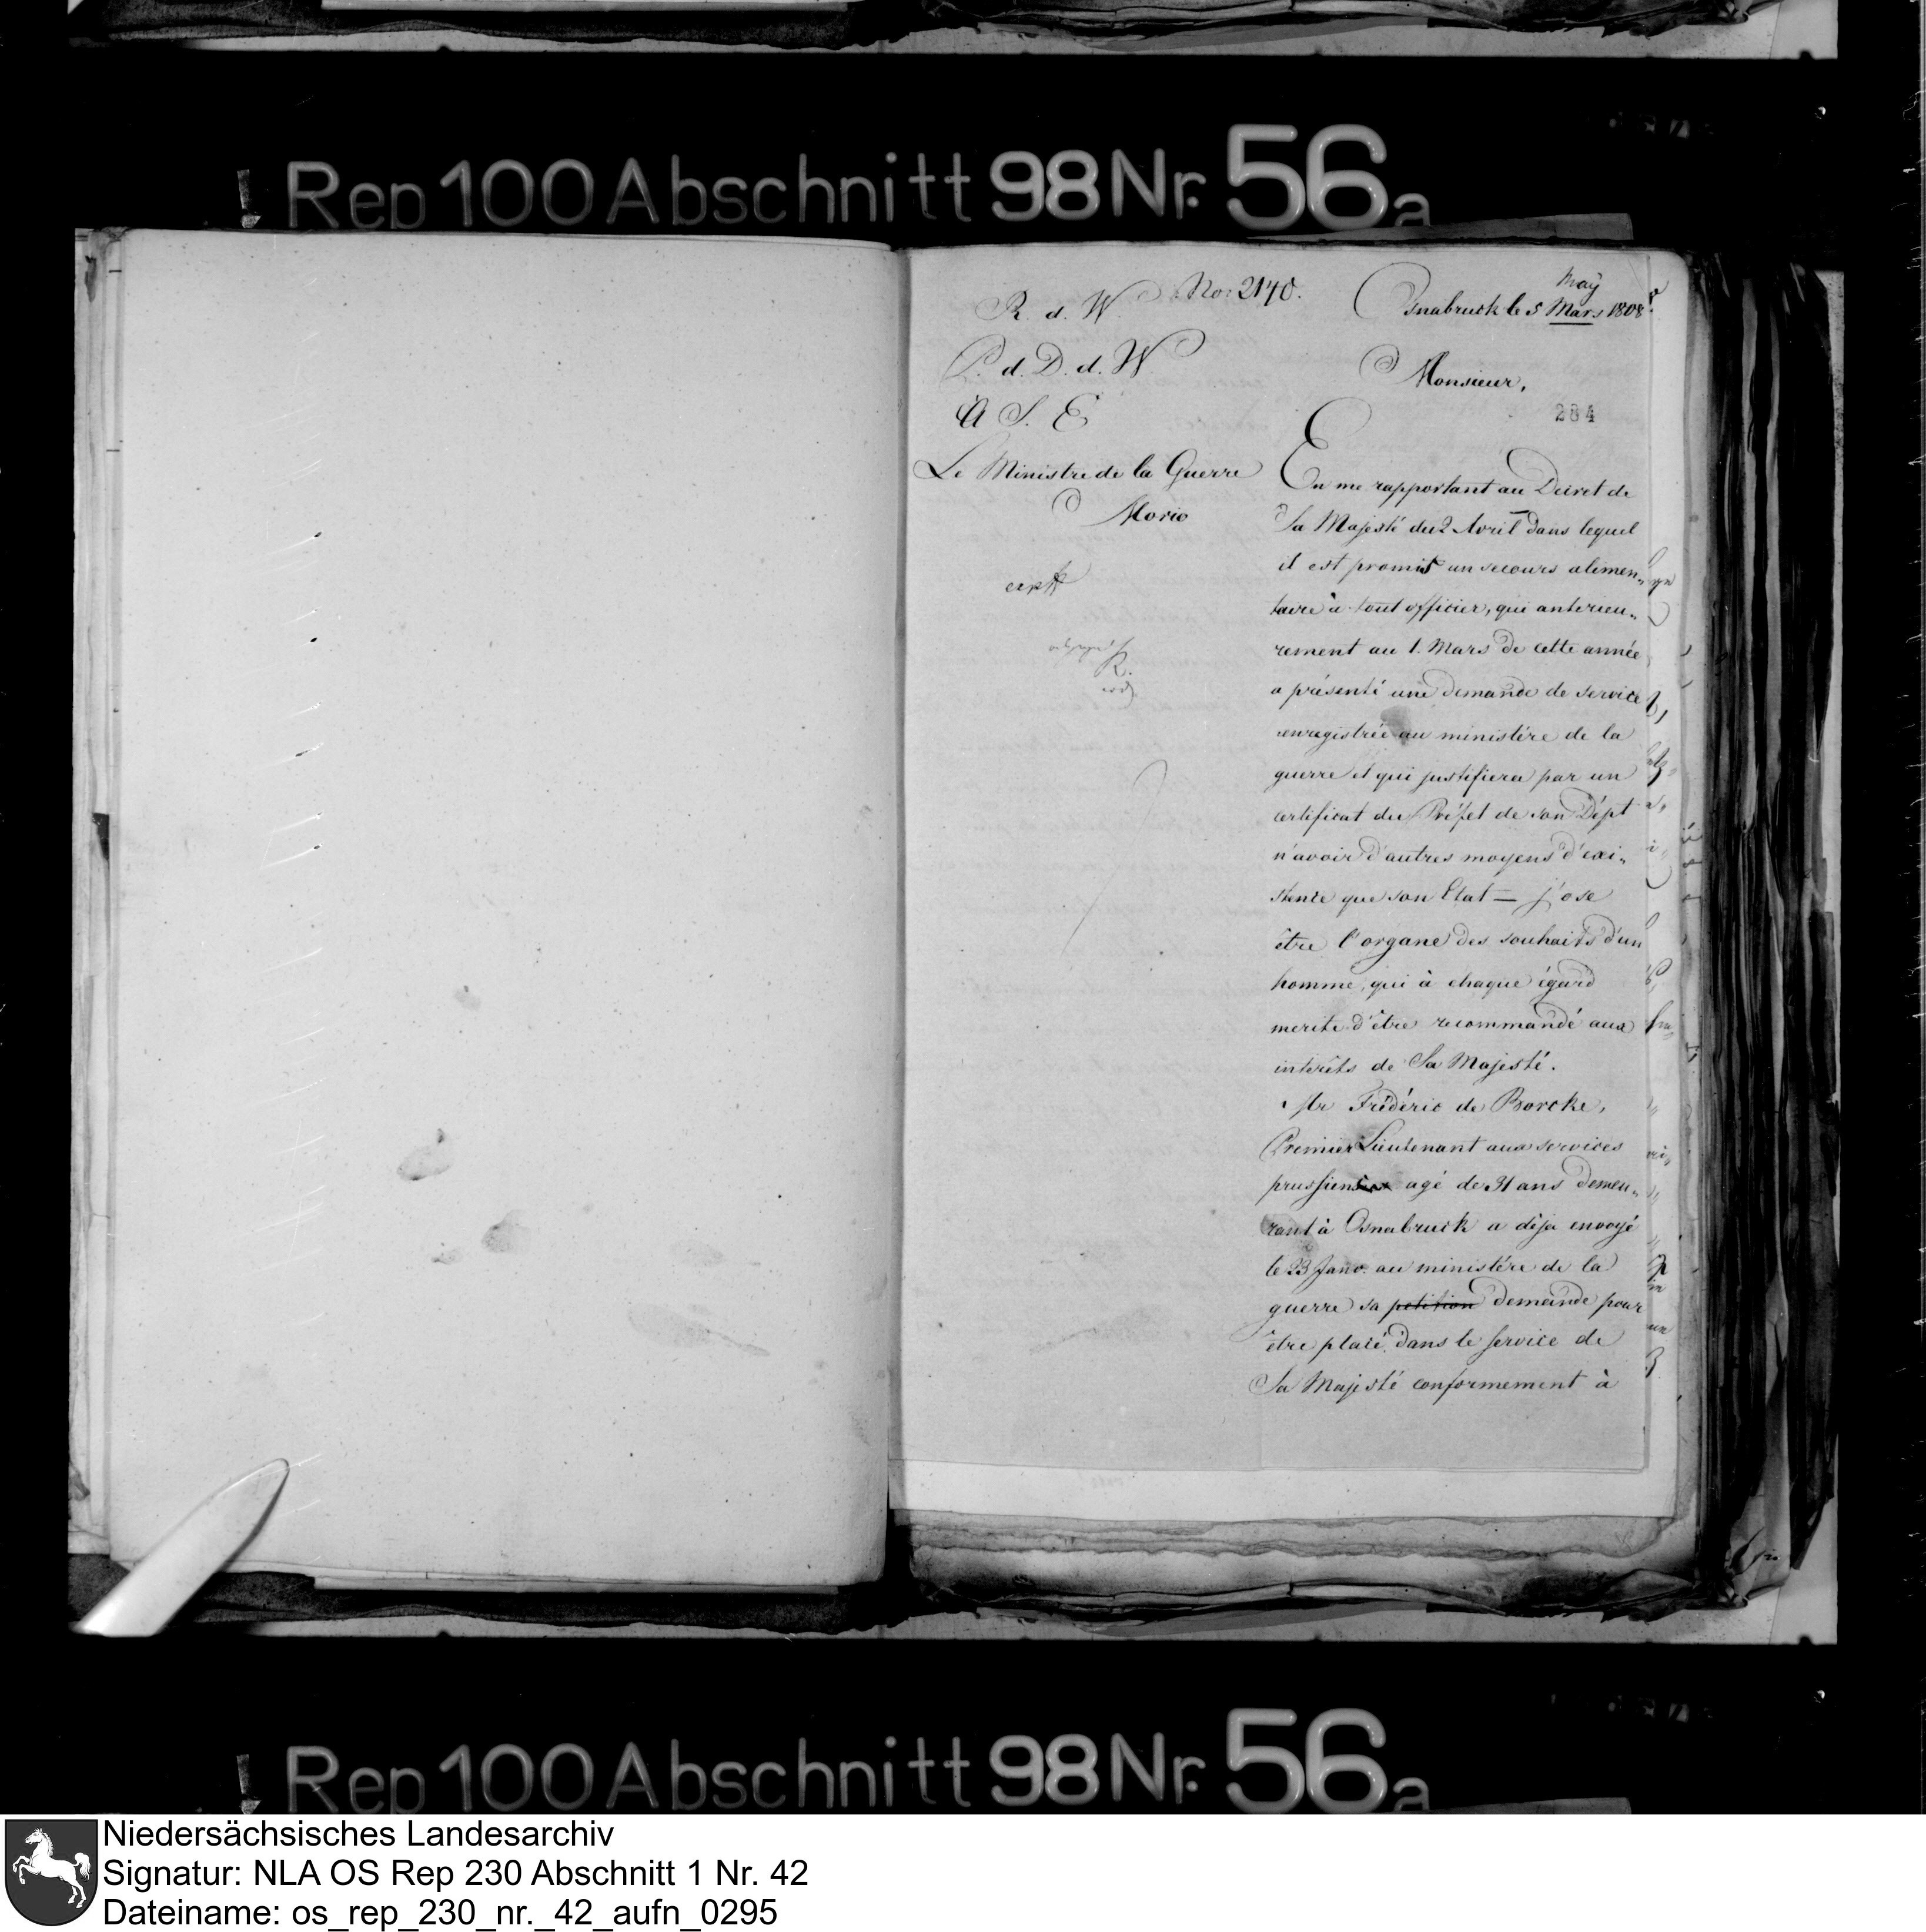 ! Rep 100 Abschnitt 98 Nr. 56a
R. d. W. No: 2140.
P. d. D. d. W
A S. E
Le Ministre de la Guerre
Morio
may
Osnabruck le 5 Mars 1808
Monsieur,
284
En me rapportant au Decret de
Sa Majesté du 2 Avril dans lequel
il est promis un secours alimen„
taire à tout officier, qui anterieu„
rement au 1. Mars de cette année
a présenté une demande de service
enregistrée au ministére de la
guerre et qui justifiera par un
certificat du Préfet de son Dépt
n'avoir d'autres moyens d'exi„
stence que son Etat — j'ose
être l'organe des souhaits d'un
homme, qui à chaque égard
merite d'être recommandé aux
interêts de Sa Majesté.
Mr Frédéric de Borcke,
Premier Lieutenant aux services
prussiens agé de 31 ans demeu„
rant à Osnabruck a déja envoyé
le 23 Janv. au ministére de la
guerre sa petition demande pour
être placé dans le service de
Sa Majesté conformement à
! Rep 100 Abschnitt 98 Nr. 56a
Niedersächsisches Landesarchiv
Signatur: NLA OS Rep 230 Abschnitt 1 Nr. 42
Dateiname: os_rep_230_nr._42_aufn_0295